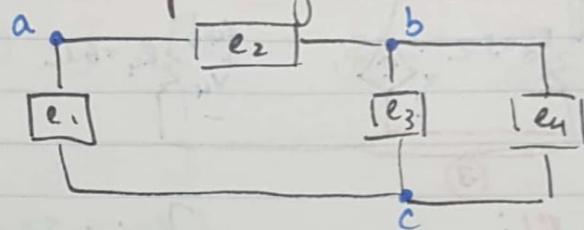 a
e2
b
e1
e3
e4
c